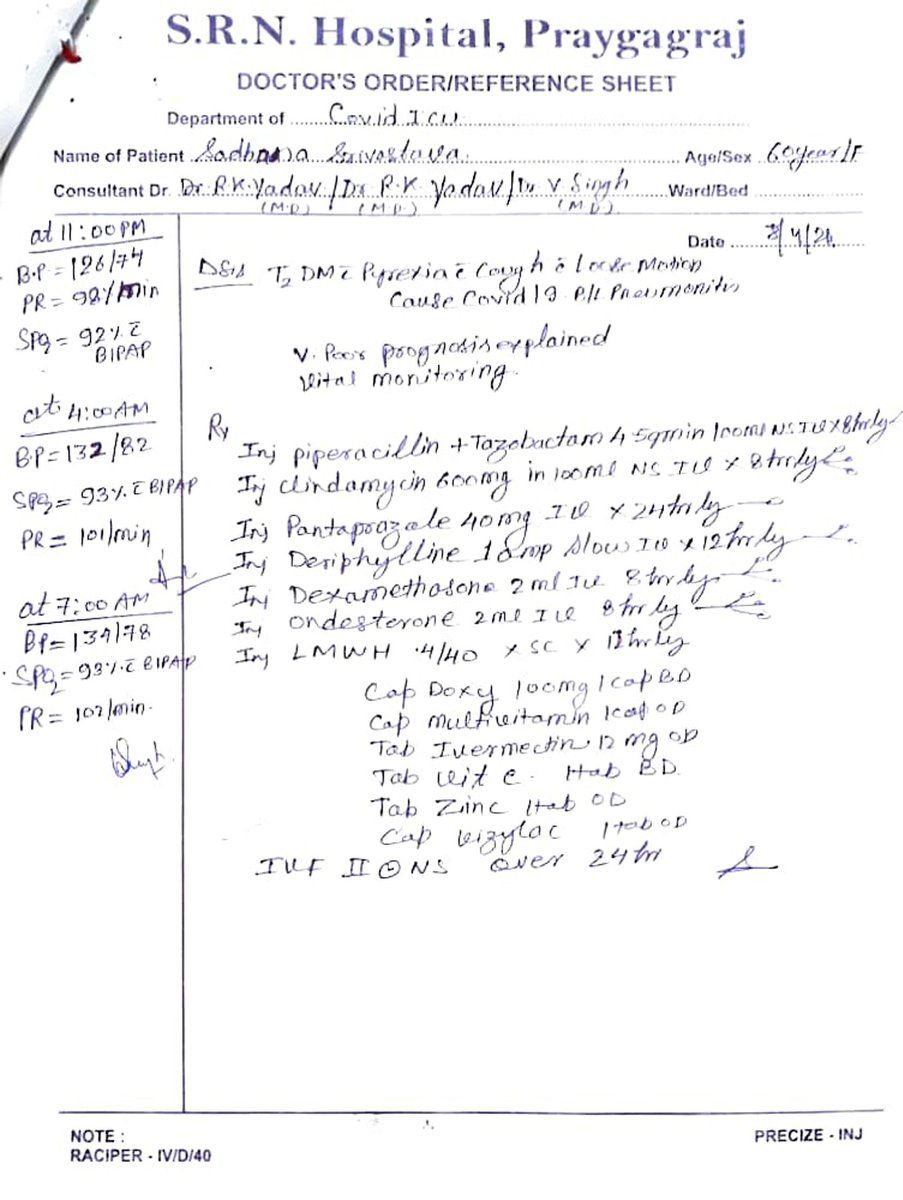 S.R.N. Hospital, Praygagraj
DOCTOR'S ORDER/REFERENCE SHEET
Department of Covid ICU
Name of Patient Sadhana Srivastava Age/Sex 60year/F
Consultant Dr. Dr. P.K. Yadav / Dr P.K Yadav / Dr V. Singh Ward/Bed
(M.D) (M.D) (M.D)
Date /4/21
at 11:00PM
B.P = 126/74
PR = 98/min
SPO2 = 92% c̄
BIPAP
at 4:00AM
BP = 132/82
SPO2 = 93% c̄ BIPAP
PR = 101/min
at 7:00AM
BP = 134/78
SPO2 = 93% c̄ BIPAP
PR = 102/min.
T2 DM c̄ Pyrexia c̄ Cough c̄ Loose Motion
Cause Covid 19 B/L Pneumonitis
V. Poor prognosis explained
Vital monitoring.
Rx
Inj piperacillin + Tazobactam 4.5gm in 100ml NS IV x 8hrly
Inj clindamycin 600mg in 100ml NS IV x 8hrly
Inj Pantaprazole 40mg IV x 24hrly
Inj Deriphylline 1 amp slow IV x 12hrly
Inj Dexamethasone 2ml IV 8hrly
Inj ondesterone 2ml IV 8hrly
Inj LMWH .4/40 x SC x 12hrly
Cap Doxy 100mg 1cap BD
Cap multivitamin 1cap OD
Tab Ivermectin 12 mg OD
Tab Vit C. 1tab BD
Tab Zinc 1tab OD
Cap Vizylac 1tab OD
IVF II NS over 24hr
NOTE :
RACIPER - IV/D/40
PRECIZE - INJ